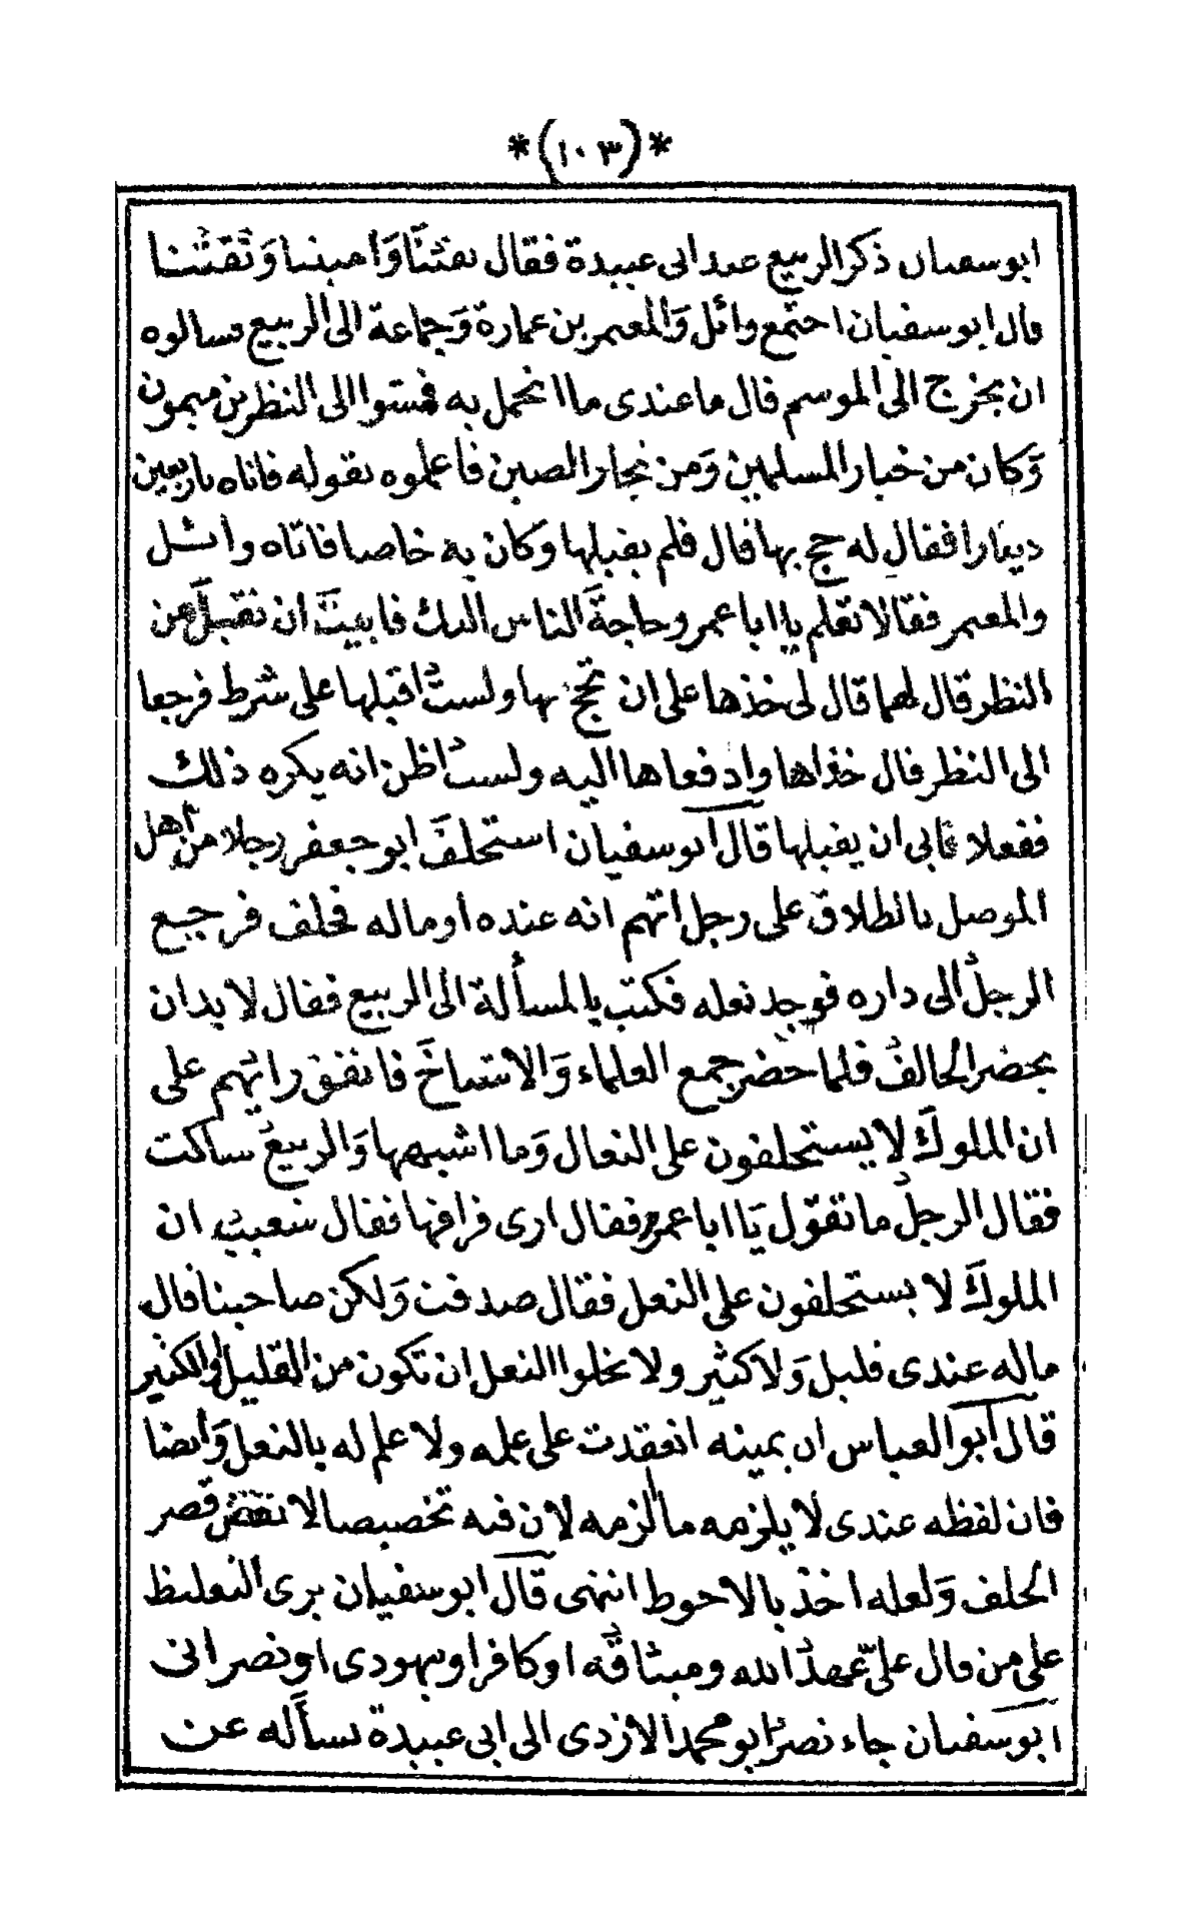 *(١٠٣)*
ابو سفيان ذكر الربيع عند ابى عبيدة فقال تقيُّنا وَامينُنا وَثقتُنا
قال ابو سفيان اجتمع وائل وَالمعمر بن عمارة وَجماعة الى الربيع فسالوه
ان يخرج الى الموسم قال ما عندى ما اتحمل به فمشوا الى النظر بن ميمون
وَكان من خيار المسلمين وَمن تجار الصين فاعلموه بقوله فاتاه باربعين
دينارا فقال له حج بها قال فلم يقبلها وكان به خاصا فاتاه وائـل
والمعمر فقالا تعلم يا ابا عمرو حاجةَ الناس اليك فابيتَ ان تقبلَ من
النظر قال لهما قال لى خذها على ان تحج بها ولستُ اقبلها على شرط فرجعا
الى النظر قال خذاها وادفعاها اليه ولستُ اظن انه يكره ذلك
ففعلا فابى ان يقبلها قال ابو سفيان استحلفَ ابو جعفر رجلا من اهل
الموصل بالطلاق على رجل اتهم انه عنده او ماله فحلف فرجـع
الرجلُ الى داره فوجد نعله فكتب بالمسألة الى الربيع فقال لا بد ان
يحضر الحالفُ فلما حضر جمع العلماء وَالاشياخَ فاتفق رايهم على
ان الملوكَ لا يستحلفون على النعال وَما اشبهها وَالربيعُ ساكت
فقال الرجلُ ما تقول يَا ابا عمرو فقال ارى فراقها فقال شعيبُ ان
الملوكَ لا يستحلفون على النعل فقال صدقت وَلكن صاحبنا قال
ماله عندى قليل وَلا كثير ولا يخلوا النعل ان تكون من القليل او الكثير
قال ابو العباس ان يمينه انعقدت على علمه ولا علم له بالنعل وَايضا
فان لفظه عندى لا يلزمه ما الزمه لان فيه تخصيصا لا نقض قصر
الحلف وَلعله اخذ بالاحوط انتهى قال ابو سفيان يرى التغليظ
على من قال علىَّ عهدُ الله وميثاقُه او كافر او يهودى او نصرانى
ابو سفيان جاء نصرُ ابو محمد الازدى الى ابى عبيدة يسأله عن